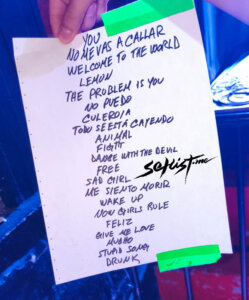 YOU
NO ME VAS A CALLAR
WELCOME TO THE WORLD
LEMON
THE PROBLEM IS YOU
NO PUEDO
TODO SE ESTÁ CAYENDO
ANIMAL
FIGHT
DANCE WITH THE DEVIL
FREE
SAD GIRL
ME SIENTO MORIR
WAKE UP
NOW GIRLS RULE
FELIZ
GIVE ME LOVE
MUCHO
STUPID SONG
DRUNK